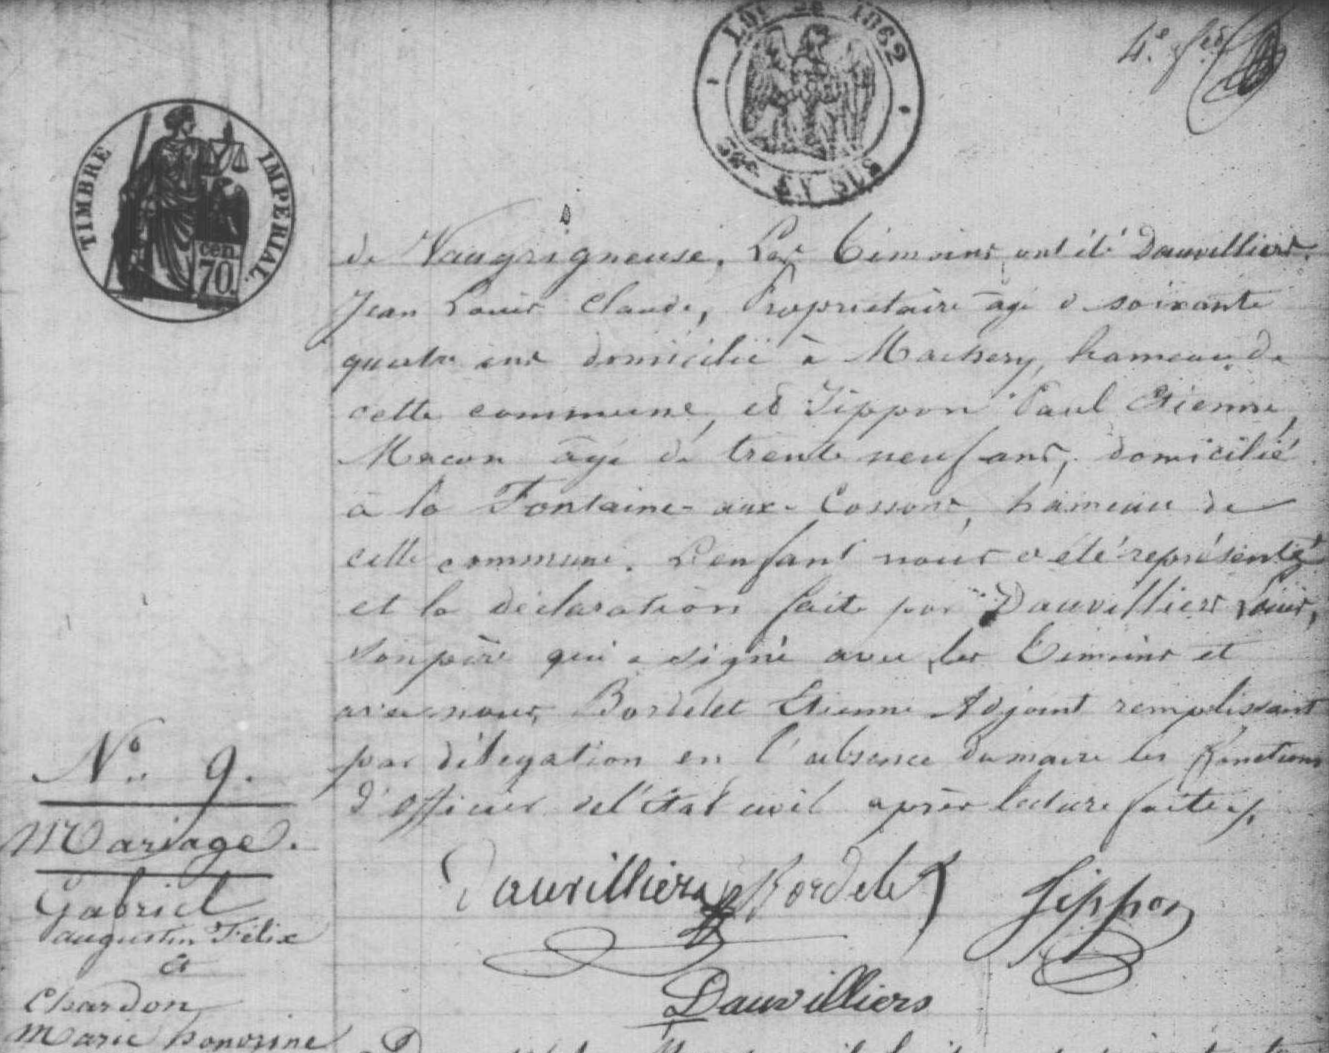 4e f.et
LOI DE 1862
50c EN SUS
TIMBRE IMPÉRIAL.
cen.
70.
de Vaugrigneuse. Les témoins ont été Dauvilliers
Jean Louis Claude, Propriétaire âgé de soixante
quatre ans domicilié à Machery, hameau de
cette commune, et Jippon Paul Etienne,
Macon âgé de trente neuf ans, domicilié
à la Fontaine-aux-Cossons, hameau de
cette commune. L'enfant nous a été représenté
et la déclaration faite par Dauvilliers Louis,
son père qui a signé avec les témoins et
avec nous, Bordelet Etienne Adjoint remplissant
par délégation en l'absence du maire les fonctions
d'officier de l'état civil après lecture faite.
Dauvilliers Bordelet Jippon
Dauvilliers
No. 9.
Mariage.
Gabriel
augustin Félix
et
Chardon
Marie honorine